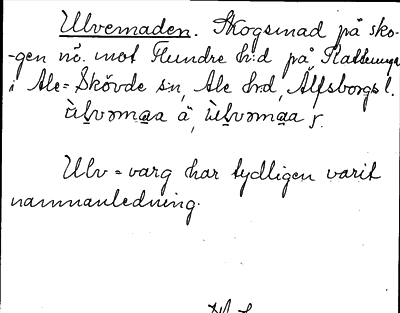 Ulvemaden. Skogsmad på sko-
-gen nö. mot Flundre h:d på
i Ale-Skövde s:n, Ale hrd, Älfsborgs l.
ä,
Ulv = varg har tydligen varit
namnanledning.